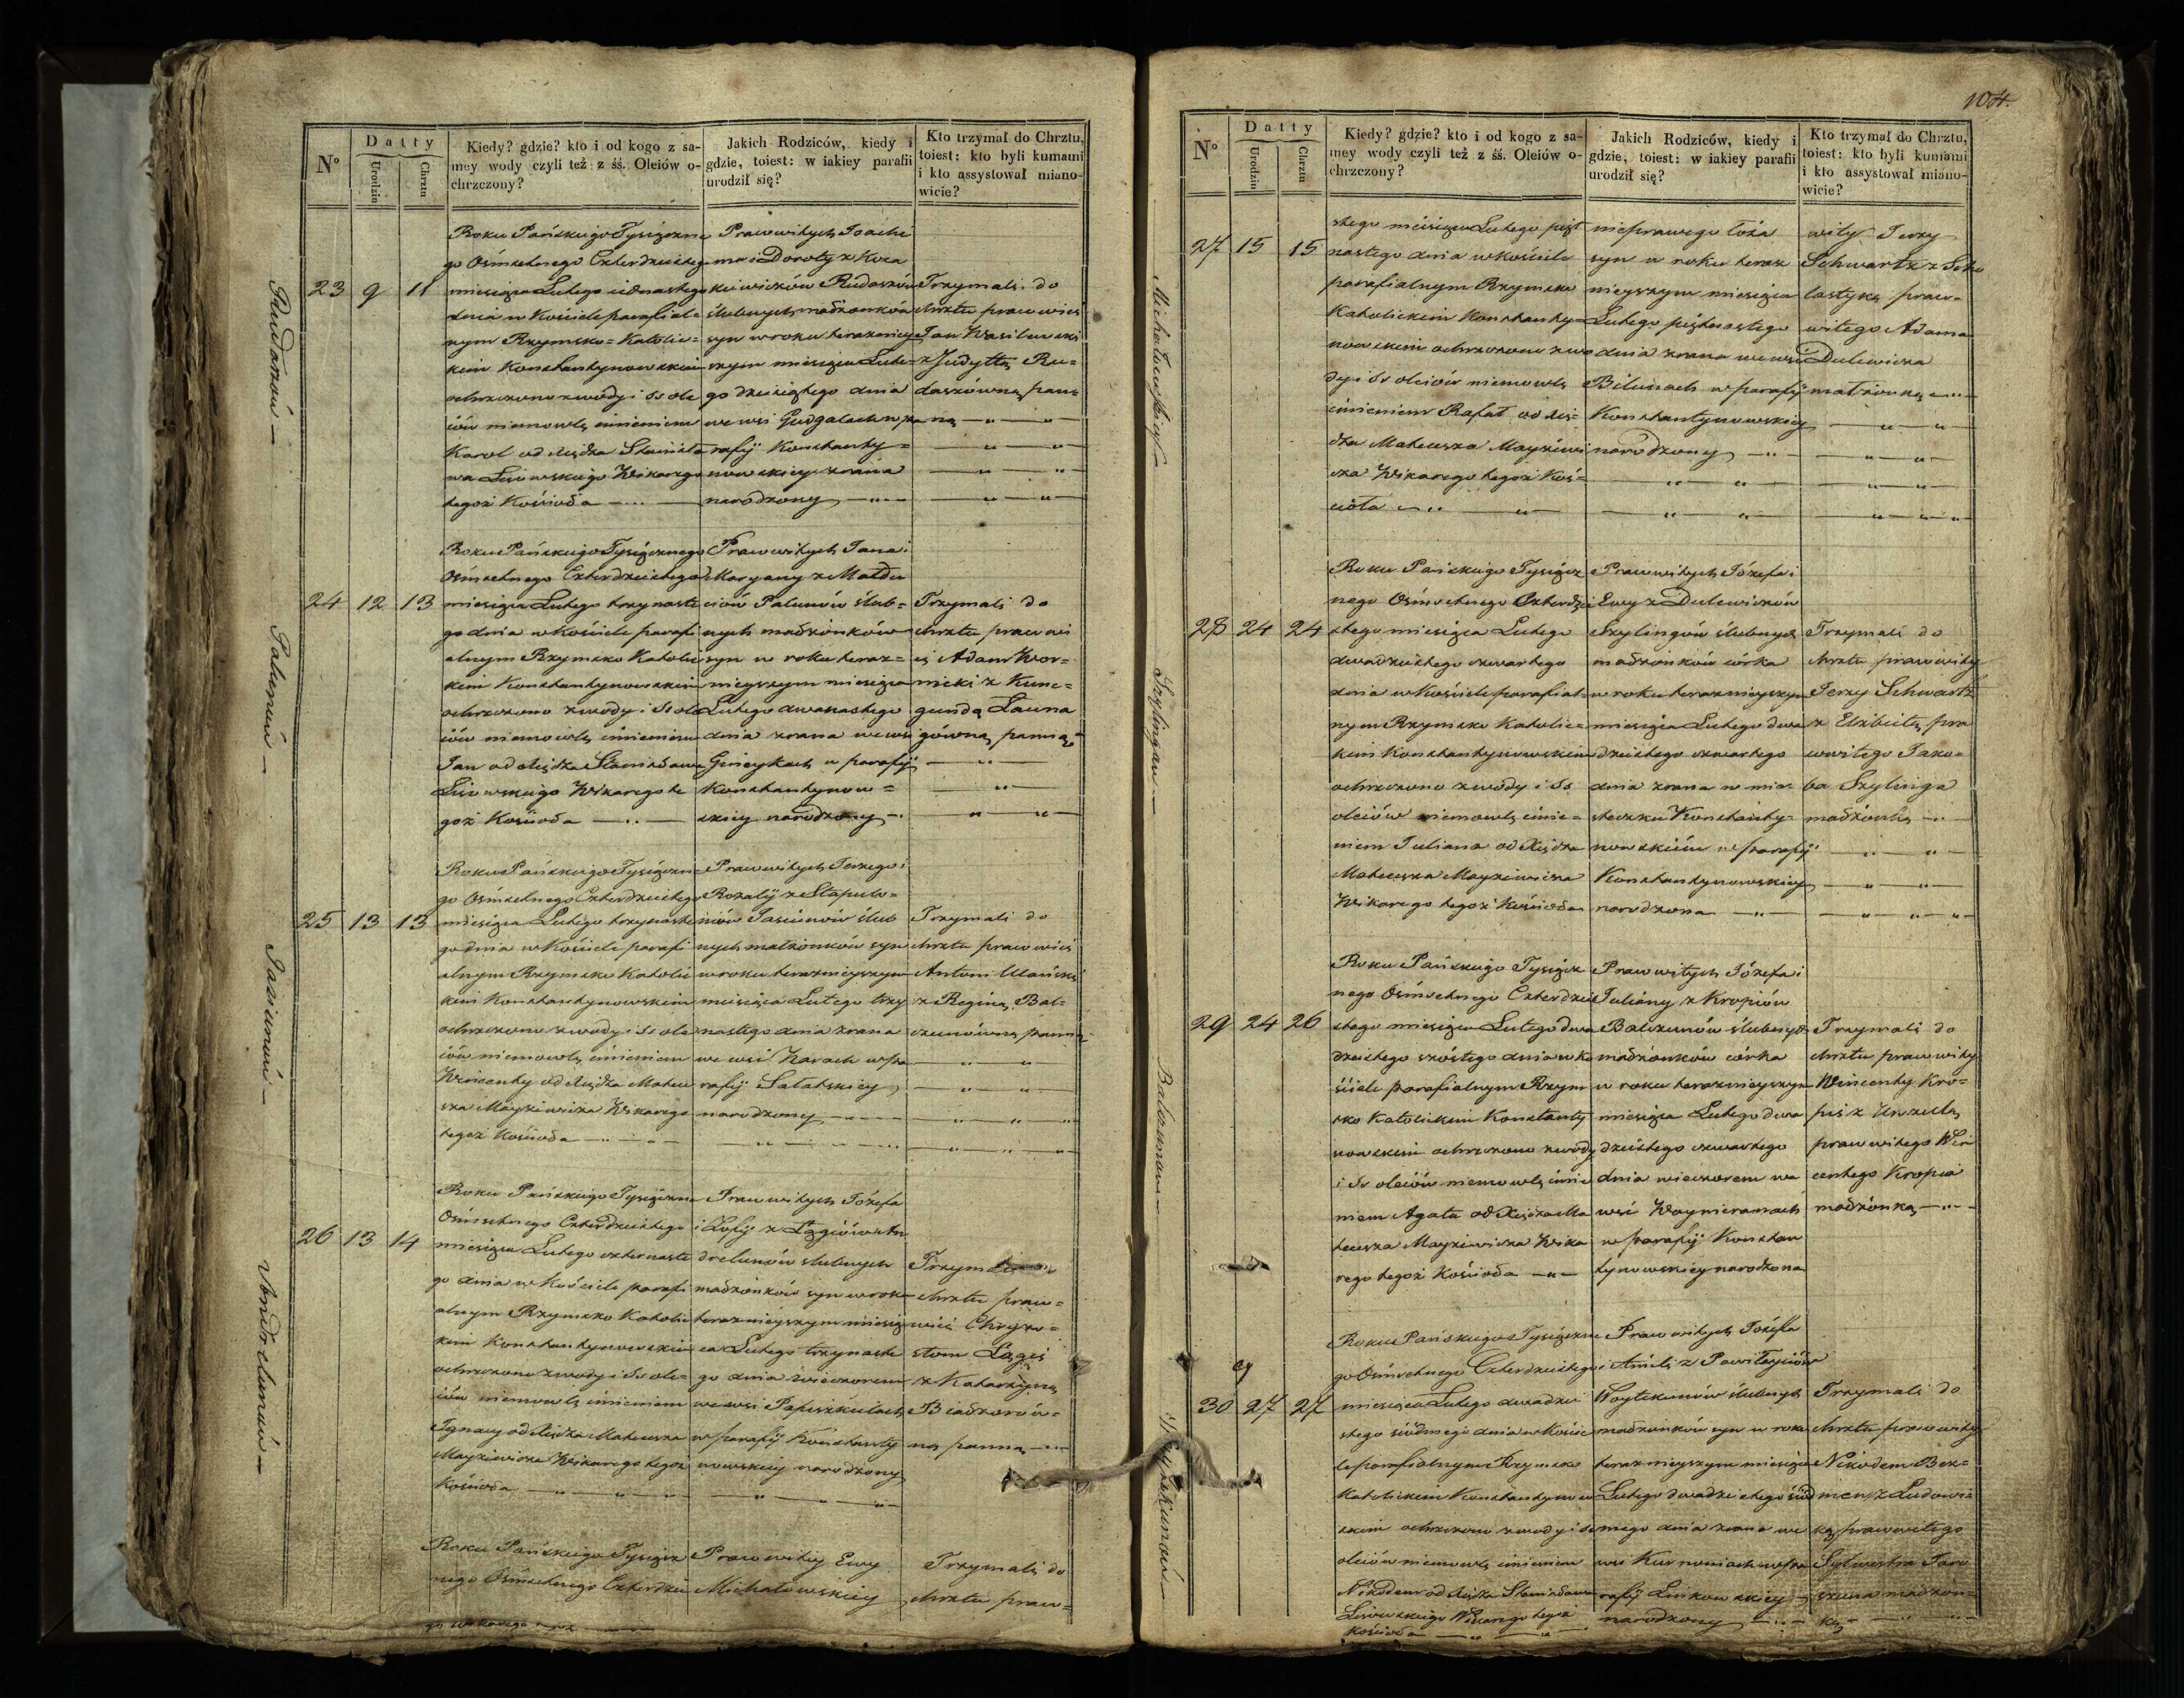 N°
Datty
Urodzin
Chrztu
Kiedy? gdzie? kto i od kogo z sa-
mey wody czyli też z śś. Oleiów o-
chrzczony?
Jakich Rodziców, kiedy i
gdzie, toiest: w iakiey parafii
urodził się?
Kto trzymał do Chrztu,
toiest: kto byli kumami
i kto assystował miano-
wicie?
Rudaszów
23 9 11
Roku Pańskiego Tysiączne
go Osmsetnego Czterdziestego
miesiąca Lutego iedenastego
dnia w Kościele parafial=
nym Rzymsko=Katolic=
kim Konstantynowskim
ochrzczono z wody i SS ole
iów niemowlę imieniem
Karol od Xiędza Stanisła
wa Lisowskiego Wikarego
tegoż Kościoła
Prawowitych Joachi
ma i Doroty z Koza
kiewiczów Rudaszów
ślubnych małżonków
syn w roku teraźniey
szym miesiąca Lute=
go dziewiątego dnia
we wsi Gudgalach w pa
rafij Konstanty=
nowskiey zrana
narodzony
Trzymali do
chrztu prawowici
Jan Wasilewski
z Judyttą Ru=
daszówną pan=
ną
Palunów
24 12 13
Roku Pańskiego Tysiącznego
Osmsetnego Czterdziestego
miesiąca Lutego trzynaste
go dnia w Kościele parafi
alnym Rzymsko Katolic
kim Konstantynowskim
ochrzczono z wody i SS ole
iów niemowlę imieniem
Jan od Xiędza Stanisława
Lisowskiego Wikarego te
goż Kościoła
Prawowitych Jana i
Maryany z Małdu
ciów Palunów ślub=
nych małżonków
syn w roku teraz=
nieyszym miesiąca
Lutego dwunastego
dnia zrana we wsi
Gineykach w parafij
Konstantynow=
skiey narodzony
Trzymali do
chrztu prawowi
ci Adam Wor=
nicki z Kune=
gundą Launa
gówną panną
Jasiunów
25 13 13
Roku Pańskiego Tysiączne
go Osmsetnego Czterdziestego
miesiąca Lutego trzynaste
go dnia w Kościele parafi
alnym Rzymsko Katolic
kim Konstantynowskim
ochrzczono z wody i SS ole
iów niemowlę imieniem
Wincenty od Xiędza Mateu
sza Mayziewicza Wikarego
tegoż Kościoła
Prawowitych Jerzego i
Rozalij z Stapulo=
niów Jasiunów ślub
nych małżonków syn
w roku teraźnieyszym
miesiąca Lutego trzy
nastego dnia zrana
we wsi Karach w pa
rafij Sałatskiey
narodzony
Trzymali do
chrztu prawowici
Antoni Ulański
z Reginą Bal=
czunówną panną
Andrelunów
26 13 14
Roku Pańskiego Tysiączne
Osmsetnego Czterdziestego
miesiąca Lutego czternaste
go dnia w Kościele parafi
alnym Rzymsko Katolic
kim Konstantynowskim
ochrzczono z wody i SS ole=
iów niemowlę imieniem
Ignacy od Xiędza Mateusza
Mayziewicza Wikarego tegoż
Kościoła
Prawowitych Józefa
i Zofij z Łagiów An
drelunów ślubnych
małżonków syn w roku
teraźnieyszym miesią
ca Lutego trzynaste
go dnia wieczorem
we wsi Papiszkulach
w parafij Konstanty
nowskiey narodzony
Trzymali do
chrztu praw=
wici Chryzo=
stom Łagis
z Katarzyną
Biadzinów=
ną panną
Roku Pańskiego Tysiącz
nego Osmsetnego Czterdzie
Prawowitey Ewy
Michałowskiey
Trzymali do
chrztu praw=
104.
N°
Datty
Urodzin
Chrztu
Kiedy? gdzie? kto i od kogo z sa-
mey wody czyli też z śś. Oleiów o-
chrzczony?
Jakich Rodziców, kiedy i
gdzie, toiest: w iakiey parafii
urodził się?
Kto trzymał do Chrztu,
toiest: kto byli kumami
i kto assystował miano-
wicie?
Michałowskiey
27 15 15
stego miesiąca Lutego pięt
nastego dnia w kościele
parafialnym Rzymsko
Katolickim Konstanty=
nowskim ochrzczono z wo
dy i SS oleiów niemowlę
imieniem Rafał od Xię=
dza Mateusza Mayziewi
cza Wikarego tegoż Koś=
cioła
nieprawego łoża
syn w roku teraz
nieyszym miesiąca
Lutego piętnastego
dnia zrana we wsi
Bilunach w parafij
Konstantynowskiey
narodzony
wity Jerzy
Schwartz z Scho
lastyką praw=
witego Adama
Dulewicza
małżonką
Szylingów
28 24 24
Roku Pańskiego Tysiącz
nego Osmsetnego Czterdzie
stego miesiąca Lutego
dwudziestego czwartego
dnia w Kościele parafial=
nym Rzymsko Katolic=
kim Konstantynowskim
ochrzczono z wody i SS
oleiów niemowlę imie=
niem Juliana od Xiędza
Mateusza Mayziewicza
Wikarego tegoż Kościoła
Prawowitych Józefa i
Ewy z Dulewiczów
Szylingów ślubnych
małżonków córka
w roku teraźnieyszym
miesiąca Lutego dwu
dziestego czwartego
dnia zrana w mia=
steczku Konstanty=
nowskim w parafij
Konstantynowskiey
narodzona
Trzymali do
chrztu prawowity
Jerzy Schwartz
z Elżbietą pra
wowitego Jako=
ba Szylinga
małżonką
Balczunów
29 24 26
Roku Pańskiego Tysiącz
nego Osmsetnego Czterdzie
stego miesiąca Lutego dwu
dziestego szóstego dnia w Ko
ściele parafialnym Rzym
sko Katolickim Konstanty
nowskim ochrzczono z wody
i SS oleiów niemowlę imie
niem Agata od Xiędza Ma
teusza Mayziewicza Wika
rego tegoż Kościoła
Prawowitych Józefa i
Juliany z Kropiów
Balczunów ślubnych
małżonków córka
w roku teraźnieyszym
miesiąca Lutego dwu
dziestego czwartego
dnia wieczorem we
wsi Woynieranach
w parafij Konstan
tynowskiey narodzona
Trzymali do
chrztu prawowity
Wincenty Kro=
pis z Urszulą
prawowitego Win
centego Kropia
małżonką
Woytekunów
30 27 27
Roku Pańskiego Tysiączne
go Osmsetnego Czterdziestego
miesiąca Lutego dwudzie
stego siódmego dnia w Kościе
le parafialnym Rzymsko
Katolickim Konstantynow
skim ochrzczono z wody i SS
oleiów niemowlę imieniem
Nikodem od Xiędza Stanisława
Lisowskiego Wikarego tegoż
Kościoła
Prawowitych Józefa
i Anieli z Powiłayciów
Woytekunów ślubnych
małżonków syn w roku
teraźnieyszym miesiąca
Lutego dwudziestego siód
mego dnia zrana we
wsi Kurmeniach w pa
rafij Linkowskiey
narodzony
Trzymali do
chrztu prawowity
Nikodem Bek=
men z Ludowi=
ką prawowitego
Sylwestra Jaro
szuna małżon=
ką